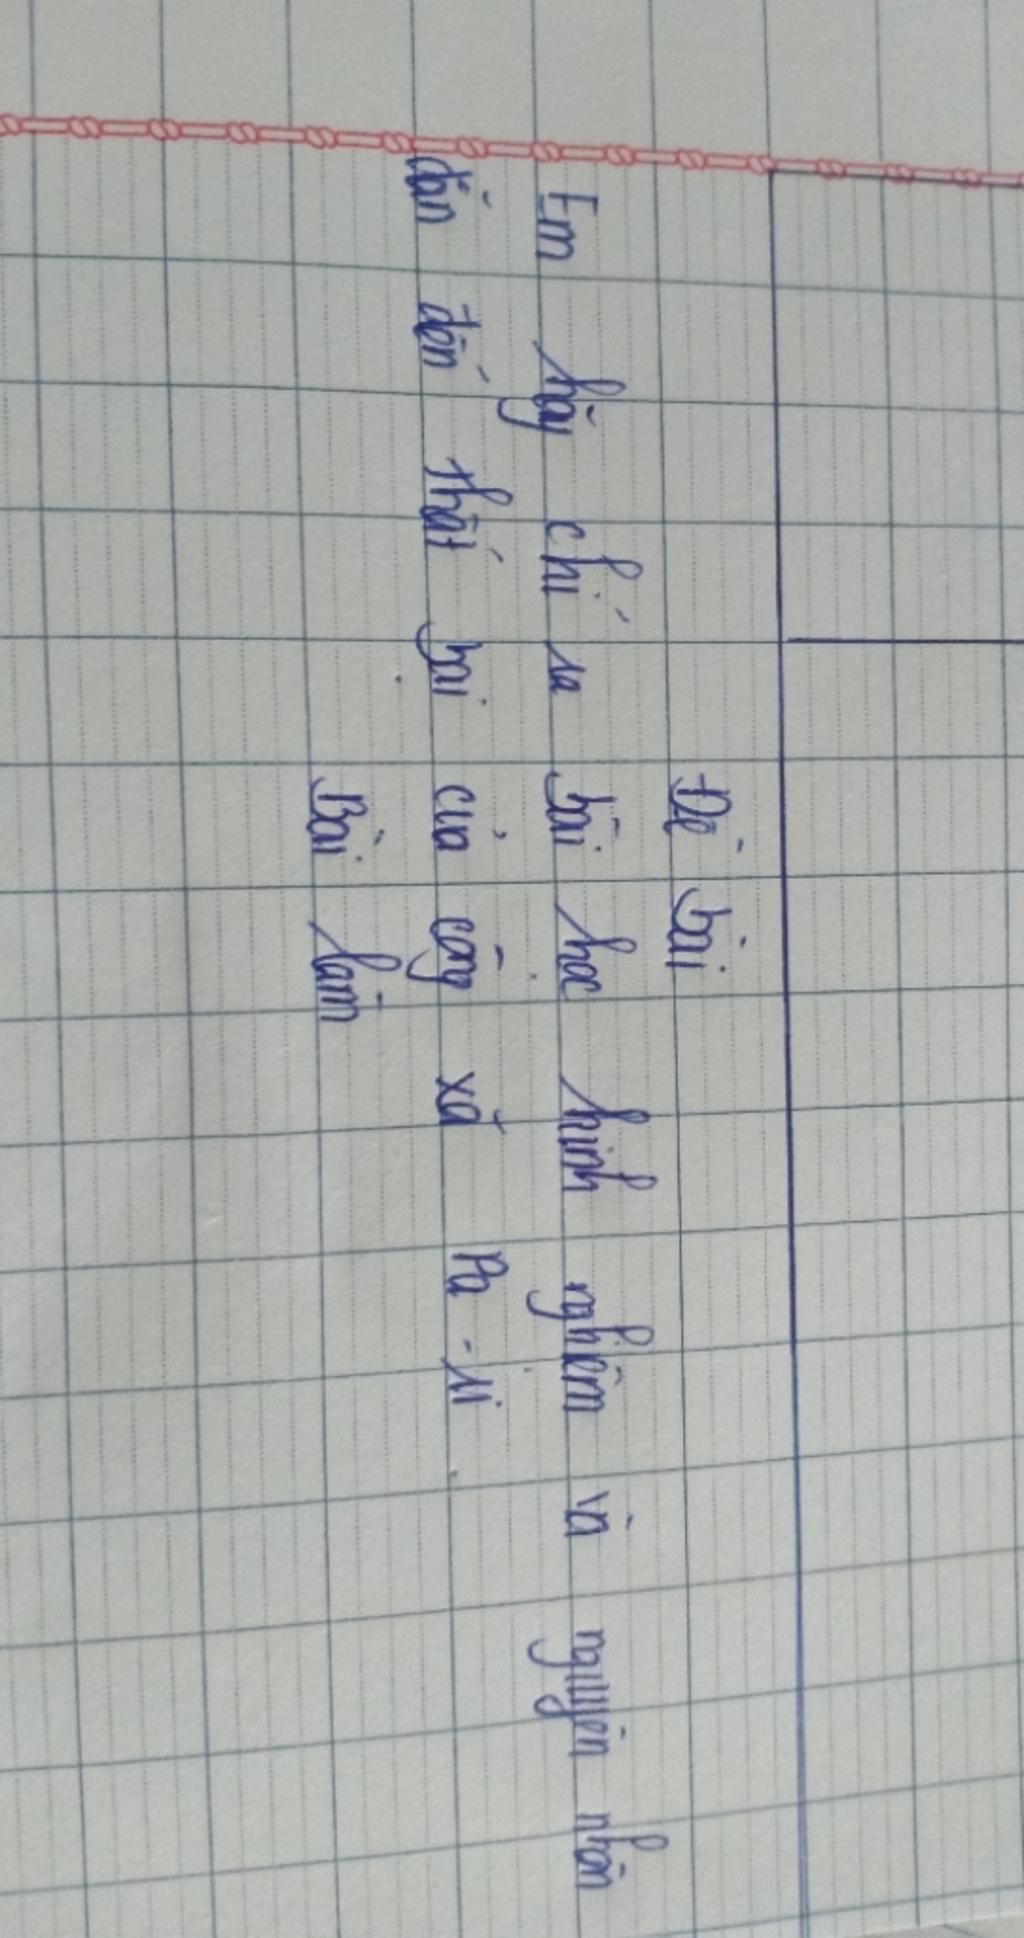 Đề bài
Em hãy chỉ ra bài học kinh nghiệm và nguyên nhân
dẫn đến thất bại của công xã Pa-ri
Bài làm